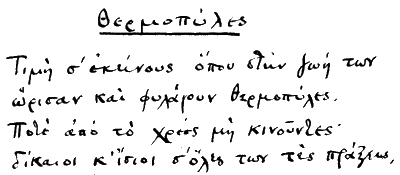 Θερμοπύλες
Τιμὴ σ' ἐκείνους ὅπου στὴν ζωή των
ὥρισαν καὶ φυλάγουν Θερμοπύλες.
Ποτὲ ἀπὸ τὸ χρέος μὴ κινοῦντες·
δίκαιοι κ' ἴσιοι σ' ὅλες των τὲς πράξεις,